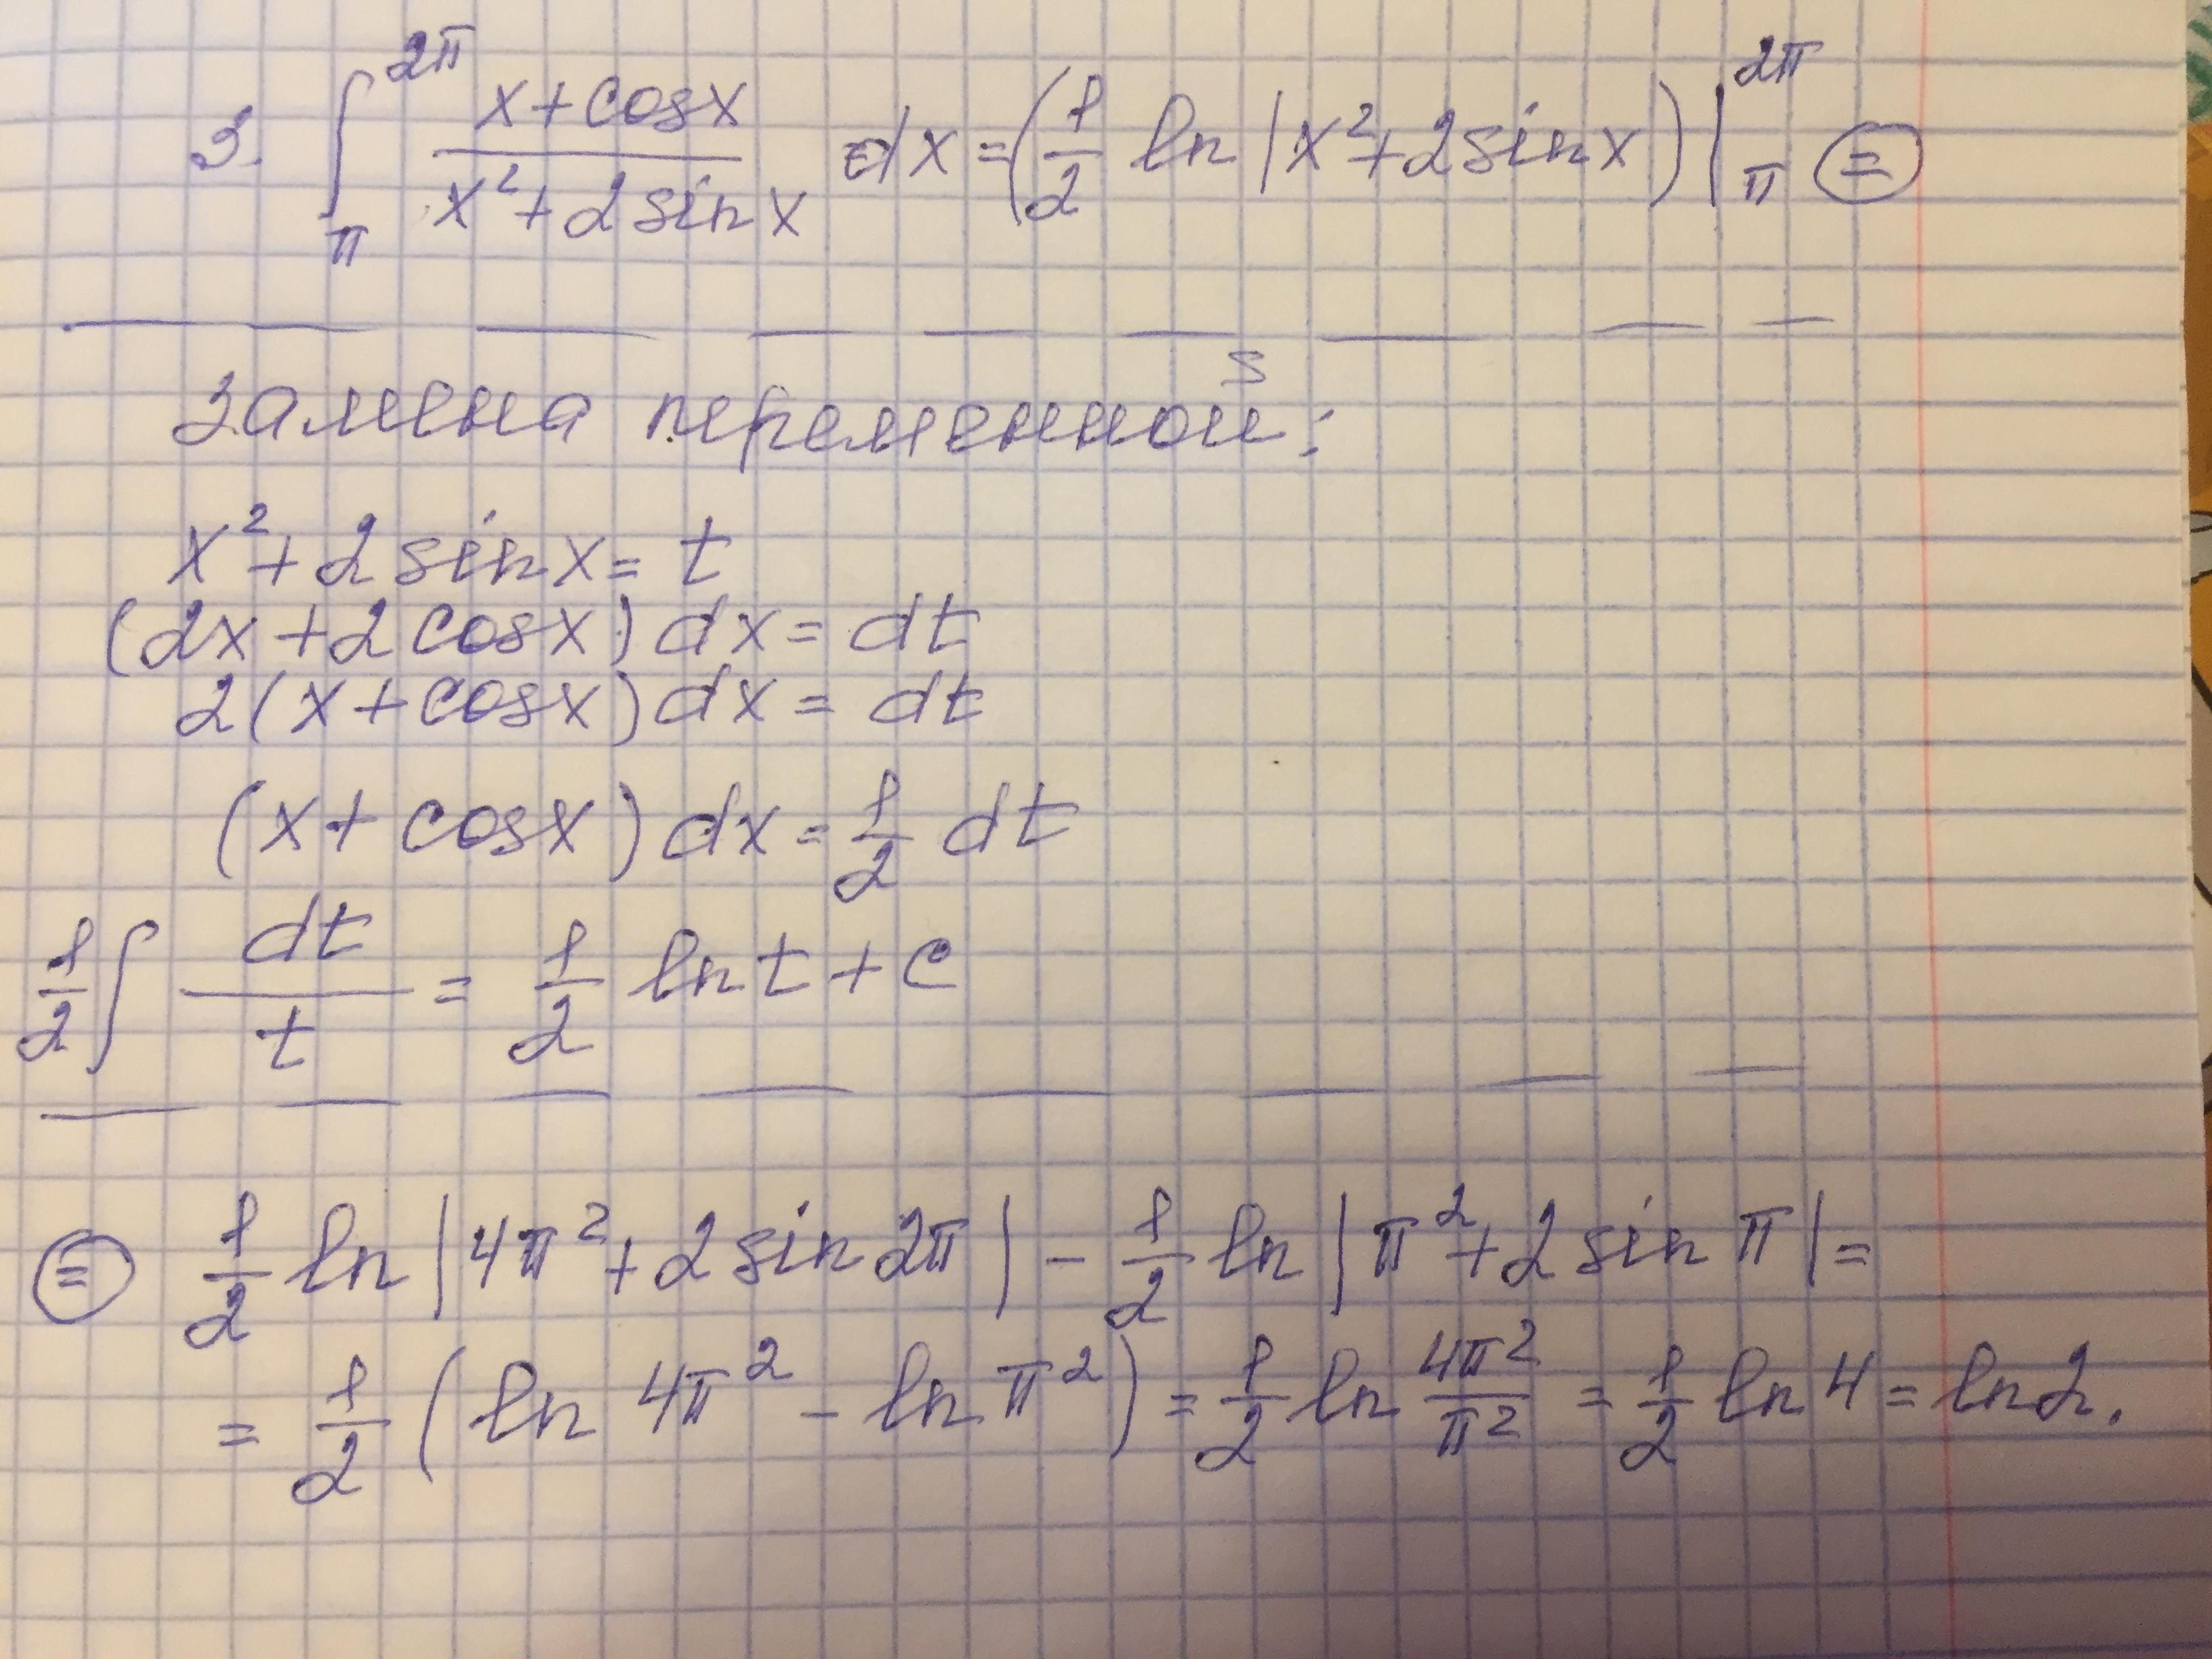 3. ∫_π^{2π} (x+cosx)/(x²+2sinx) dx = (1/2 ln|x²+2sinx)|_π^{2π} ⊜
Замена переменной:
x²+2sinx = t
(2x+2cosx)dx = dt
2(x+cosx)dx = dt
(x+cosx)dx = 1/2 dt
1/2 ∫ dt/t = 1/2 ln t + c
⊜ 1/2 ln|4π²+2sin2π| - 1/2 ln|π²+2sinπ| =
= 1/2 (ln 4π² - ln π²) = 1/2 ln 4π²/π² = 1/2 ln 4 = ln2.